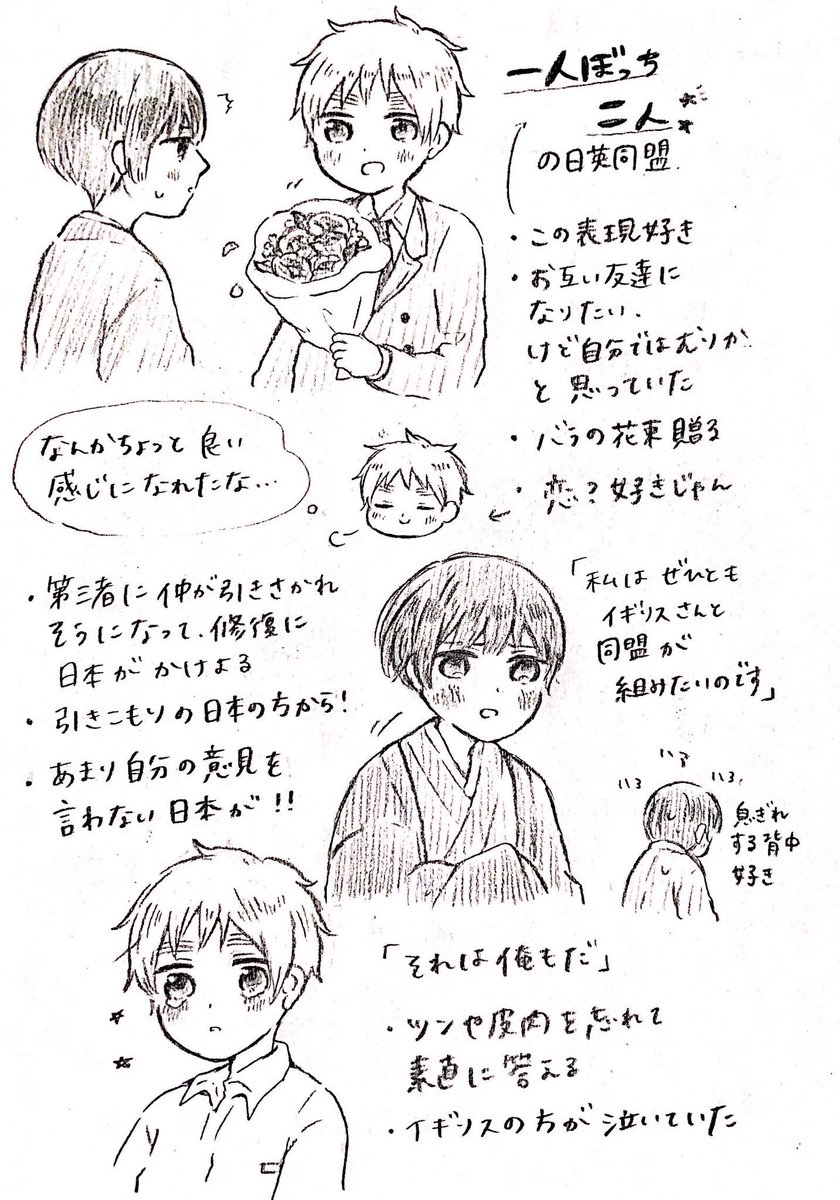 一人ぼっち
二人
の日英同盟
・この表現好き
・お互い友達に
なりたい、
けど自分ではむりか
と思っていた
・バラの花束贈る
・恋？好きじゃん
なんかちょっと良い
感じになれたな…
・第三者に仲が引きさかれ
そうになって、修復に
日本がかけよる
・引きこもりの日本の方から!
・あまり自分の意見を
言わない日本が!!
「私はぜひとも
イギリスさんと
同盟が
組みたいのです」
息ぎれ
する背中
好き
「それは俺もだ」
・ツンや皮肉を忘れて
素直に答える
・イギリスの方が泣いていた